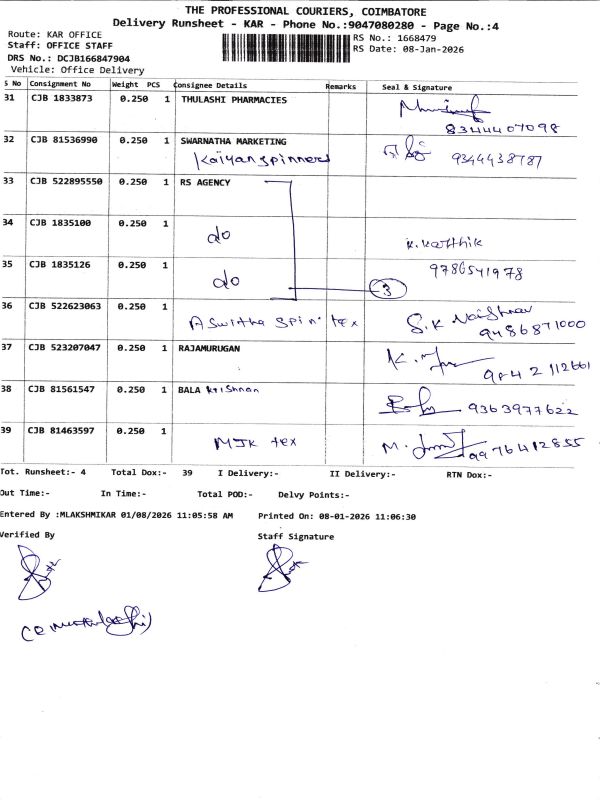 THE PROFESSIONAL COURIERS, COIMBATORE
Delivery Runsheet - KAR - Phone No.:9047080280 - Page No.:4
Route: KAR OFFICE
Staff: OFFICE STAFF
DRS No.: DCJB166847904
Vehicle: Office Delivery
RS No.: 1668479
RS Date: 08-Jan-2026
S No Consignment No Weight PCS Consignee Details Remarks Seal & Signature
31 CJB 1833873 0.250 1 THULASHI PHARMACIES
8344407098
32 CJB 81536990 0.250 1 SWARNATHA MARKETING
Kaiyan spinners 9344438787
33 CJB 522895550 0.250 1 RS AGENCY
34 CJB 1835100 0.250 1
do K. Karthik
35 CJB 1835126 0.250 1 9786541978
do 3
36 CJB 522623063 0.250 1
Aswitha spin tex S.K
9486871000
37 CJB 523207047 0.250 1 RAJAMURUGAN
K. 9842112661
38 CJB 81561547 0.250 1 BALA Krishnan
9363977622
39 CJB 81463597 0.250 1
MJK tex M. 9976412855
Tot. Runsheet:- 4 Total Dox:- 39 I Delivery:- II Delivery:- RTN Dox:-
Out Time:- In Time:- Total POD:- Delvy Points:-
Entered By :MLAKSHMIKAR 01/08/2026 11:05:58 AM Printed On: 08-01-2026 11:06:30
Verified By Staff Signature